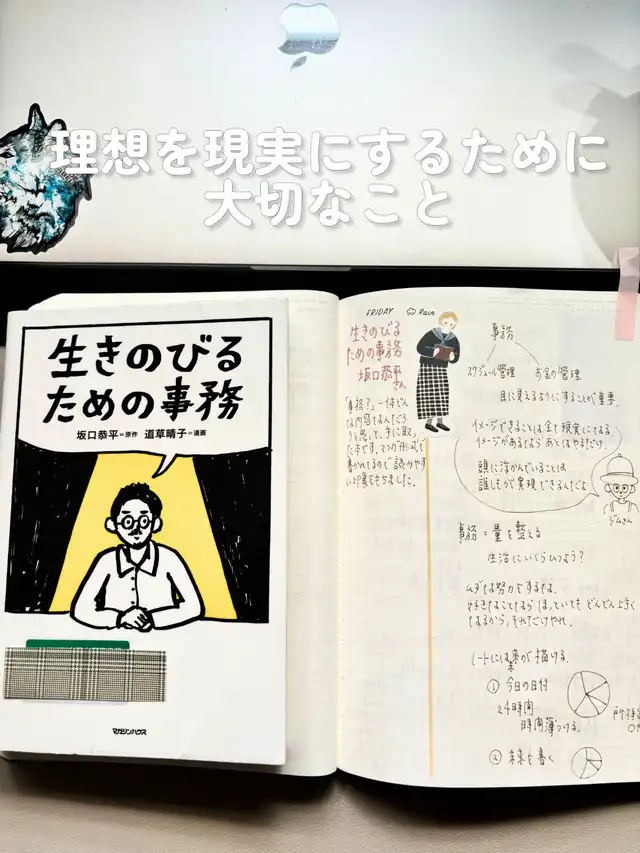 理想を現実にするために
大切なこと
生きのびる
ための事務
坂口恭平=原作 道草晴子=漫画
マガジンハウス
FRIDAY Rain
生きのびる
ための事務
坂口恭平
さん
「事務?」一体どん
な内容なんだろ
うと思って、手に取っ
た本です。マンガ形式で
書かれてるので読みやす
い印象をもちました。
事務
スケジュール管理 お金の管理
目に見えるようにすることが重要。
イメージできることは全て現実にできる
イメージがあるなら あとはやるだけ。
頭に浮かんでいることは
誰しもが実現できるんだよ
ジムさん
事務=量を整える
生活にいくらひつよう?
ムダな努力をするな。
好きなことならほっといても どんどん上手く
なるから、それだけやれ。
ノートには未来が描ける。
① 今日の日付
24時間
時間簿つける。
② 未来を書く